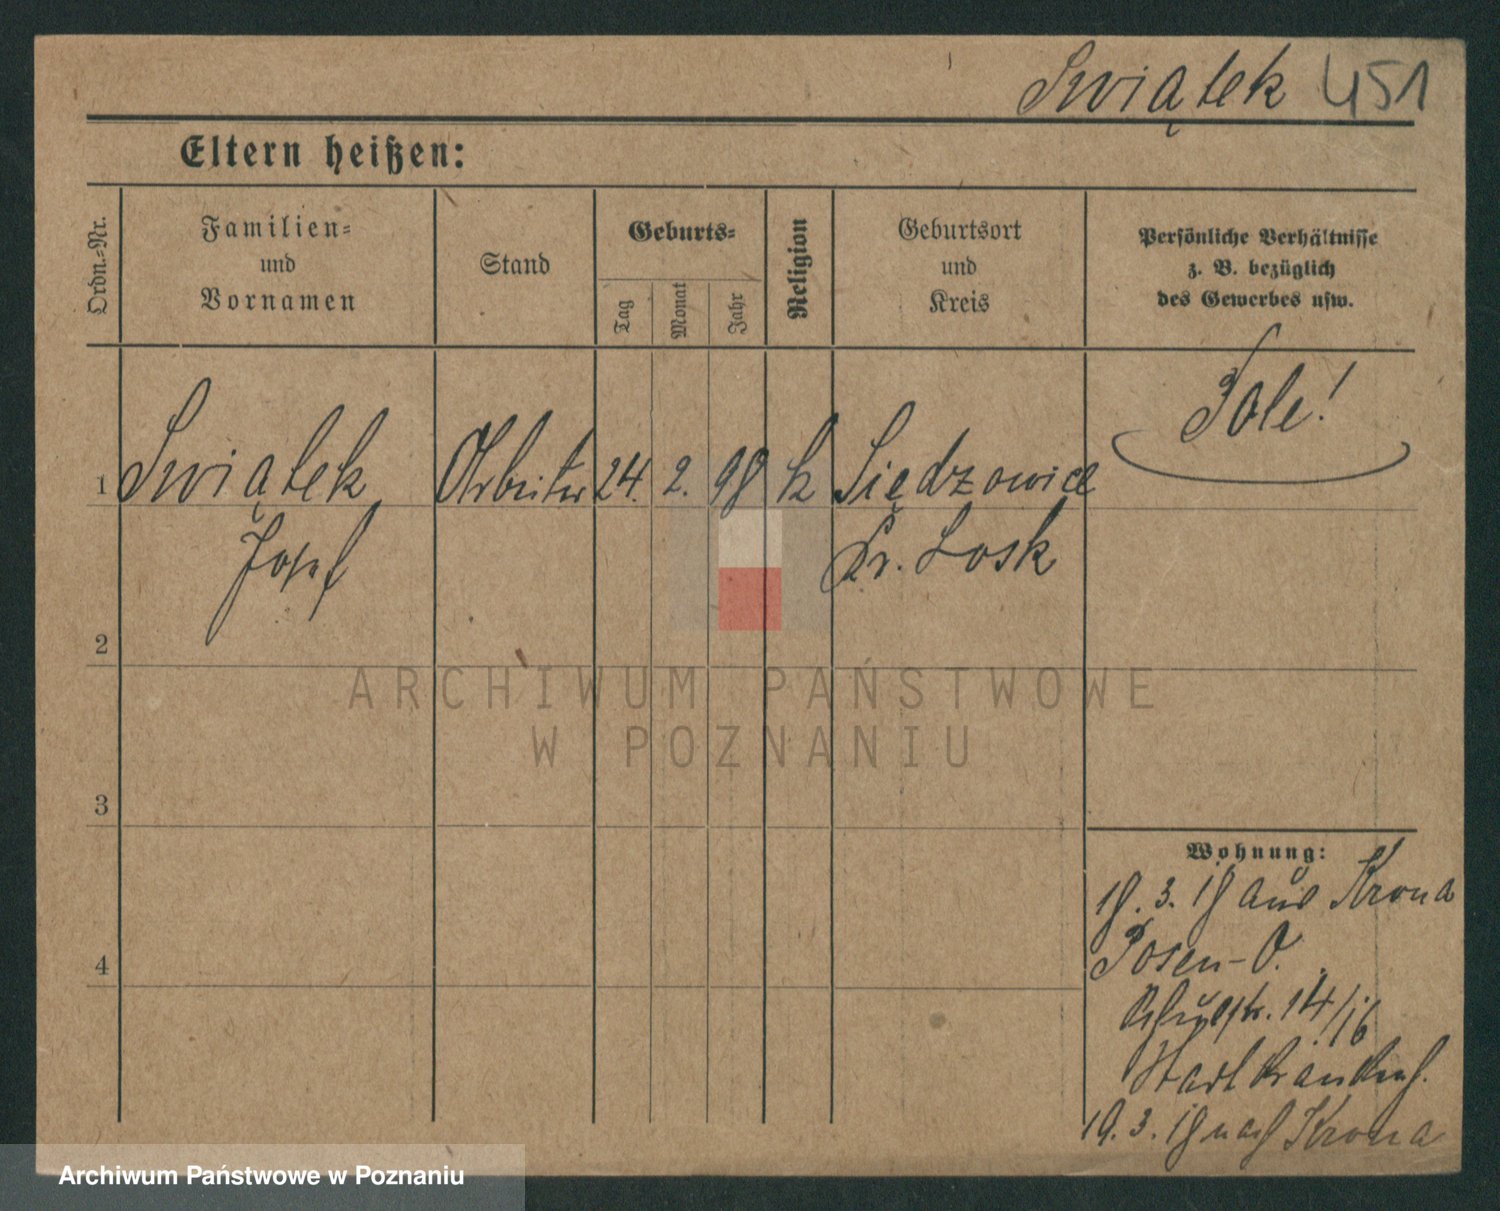 Swiątek 451
Eltern heißen:
Ordn.-Nr.
Familien-
und
Vornamen
Stand
Geburts-
Tag
Monat
Jahr
Religion
Geburtsort
und
Kreis
Persönliche Verhältnisse
z. B. bezüglich
des Gewerbes usw.
Pole!
1 Swiątek Arbeiter 24. 2. 98 k Siędzowice
Josef Kr. Losk
2
ARCHIWUM PAŃSTWOWE
W POZNANIU
3
Wohnung:
18. 3. 18 aus Krona
4
Posen-O.
Schulstr. 14/16
Stadtkrankenh.
19. 3. 18 nach Krona
Archiwum Państwowe w Poznaniu